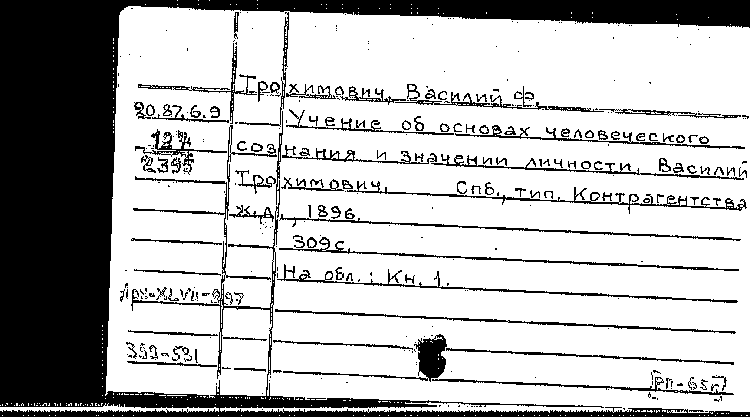 Трохимович, Василий Ф.
20.87.6.9
Учение об основах человеческого
127
2395
сознания и значении личности, Василий
Трохимович. Спб., тип. Контрагентства
ж.д., 1896.
309с.
На обл.: Кн. 1.
353-531
[РП-65г]